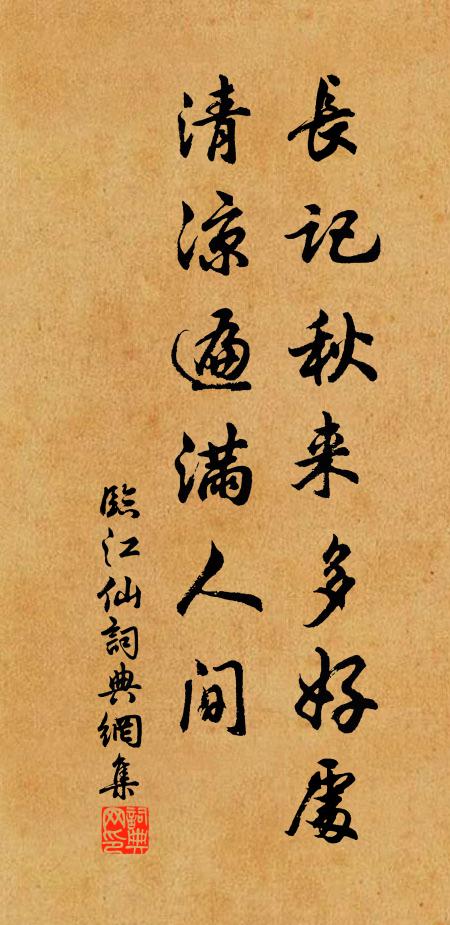 長記秋来多好處
清涼遍滿人间
臨江仙詞典網集
詞典网印